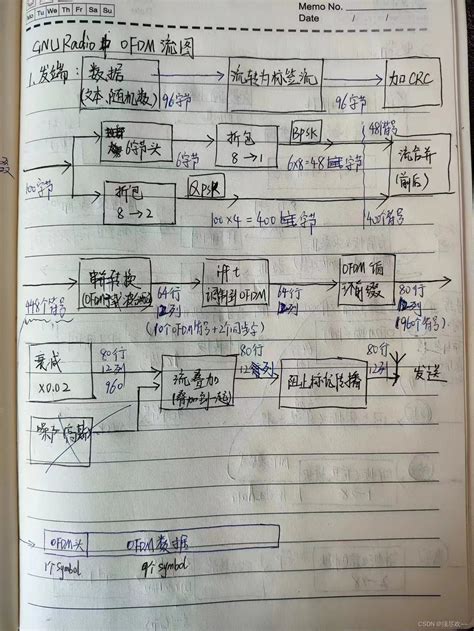 Memo No.
Mo Tu We Th Fr Sa Su
Date / /
GNU Radio中 OFDM 流图
1. 发端:
数据
(文本,随机数)
96字节
流转为标签流
96字节
加CRC
6字节头
6字节
拆包
8→1
BPSK
6x8=48
字节
48符号
流合并
(前后)
100字节
拆包
8→2
QPSK
100×4=400
字节
400符号
448个符号
串并转换
64行
12列
ifft
调制到OFDM
64行
12列
OFDM 循
环前缀
80行
12列
(10个OFDM符号+2个同步字)
(960符号)
衰减
x0.02
80行
12列
960
流叠加
(叠加到一起)
80行
12列
阻止标签传播
80行
12列
发送
噪声(高斯)
OFDM头
OFDM数据
1个symbol
9个symbol
CSDN